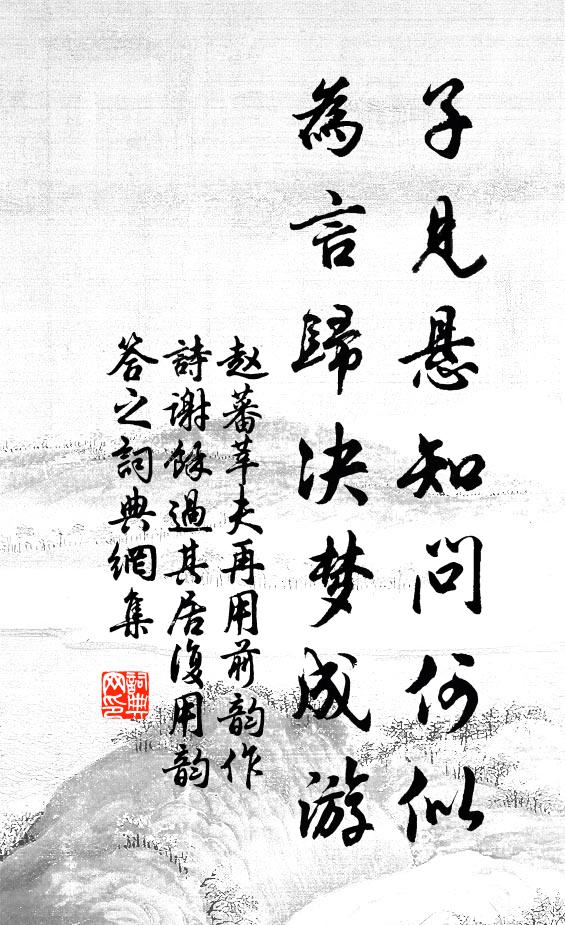 子見悬知問何似
為言歸决梦成游
赵蕃莘夫再用前韵作
詩謝馀過其居復用韵
答之詞典網集
詞典网印